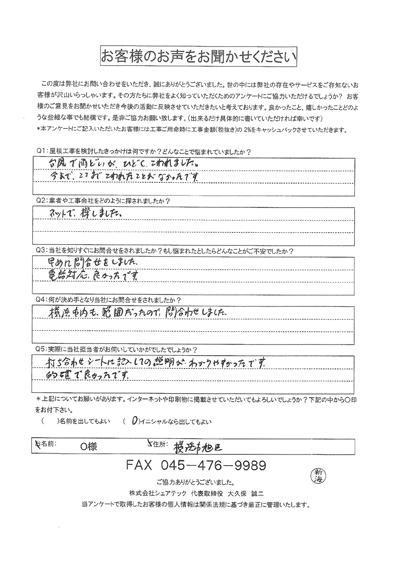 お客様のお声をお聞かせください
この度は弊社にお問い合わせをいただき、誠にありがとうございました。世の中には弊社の存在やサービスをご存知ないお
客様が沢山いらっしゃいます。その方たちに弊社をよく知っていただくためのアンケートにご協力いただけるでしょうか？ お客
様のご意見をお聞かせいただき今後の活動に反映させていただきたいと考えております。良かったこと、嬉しかったことどのよ
うな些細な事でも結構です。是非ご協力お願い致します。（出来るだけ具体的に書いていただければ幸いです）
*本アンケートにご記入いただいたお客様には工事ご用命時に工事金額(税抜き)の 2%をキャッシュバックさせていただきます。
Q1:屋根工事を検討したきっかけは何ですか？どんなことで悩まれていましたか？
台風で雨どいが、ひどく、こわれました。
今まで、ここまでこわれたことがなかったです
Q2:業者や工事会社をどのように探されましたか？
ネットで、探しました。
Q3:当社を知りすぐにお問合せをされましたか？もし悩まれたとしたらどんなことがご不安でしたか？
早めに問合せをしました。
電話対応、良かったです
Q4:何が決め手となり当社にお問合せをされましたか？
横浜市内も、範囲だったので、問合わせしました。
Q5:実際に当社担当者がお伺いしていかがでしたでしょうか？
打ち合わせシートに記入しての説明がわかりやすかったです。
的確で良かったです。
*上記についてお願いがあります。インターネットや印刷物に掲載させていただいてもよろしいでしょうか？下記の中から〇印
をお付下さい。
（　　）名前を出してもよい　（ 〇 ）イニシャルなら出してもよい
お名前:　O様　ご住所: 横浜市旭区
FAX 045-476-9989
新海
ご協力ありがとうございました。
株式会社シェアテック 代表取締役 大久保 誠二
当アンケートで取得したお客様の個人情報は関係法規に基づき厳正に管理いたします。